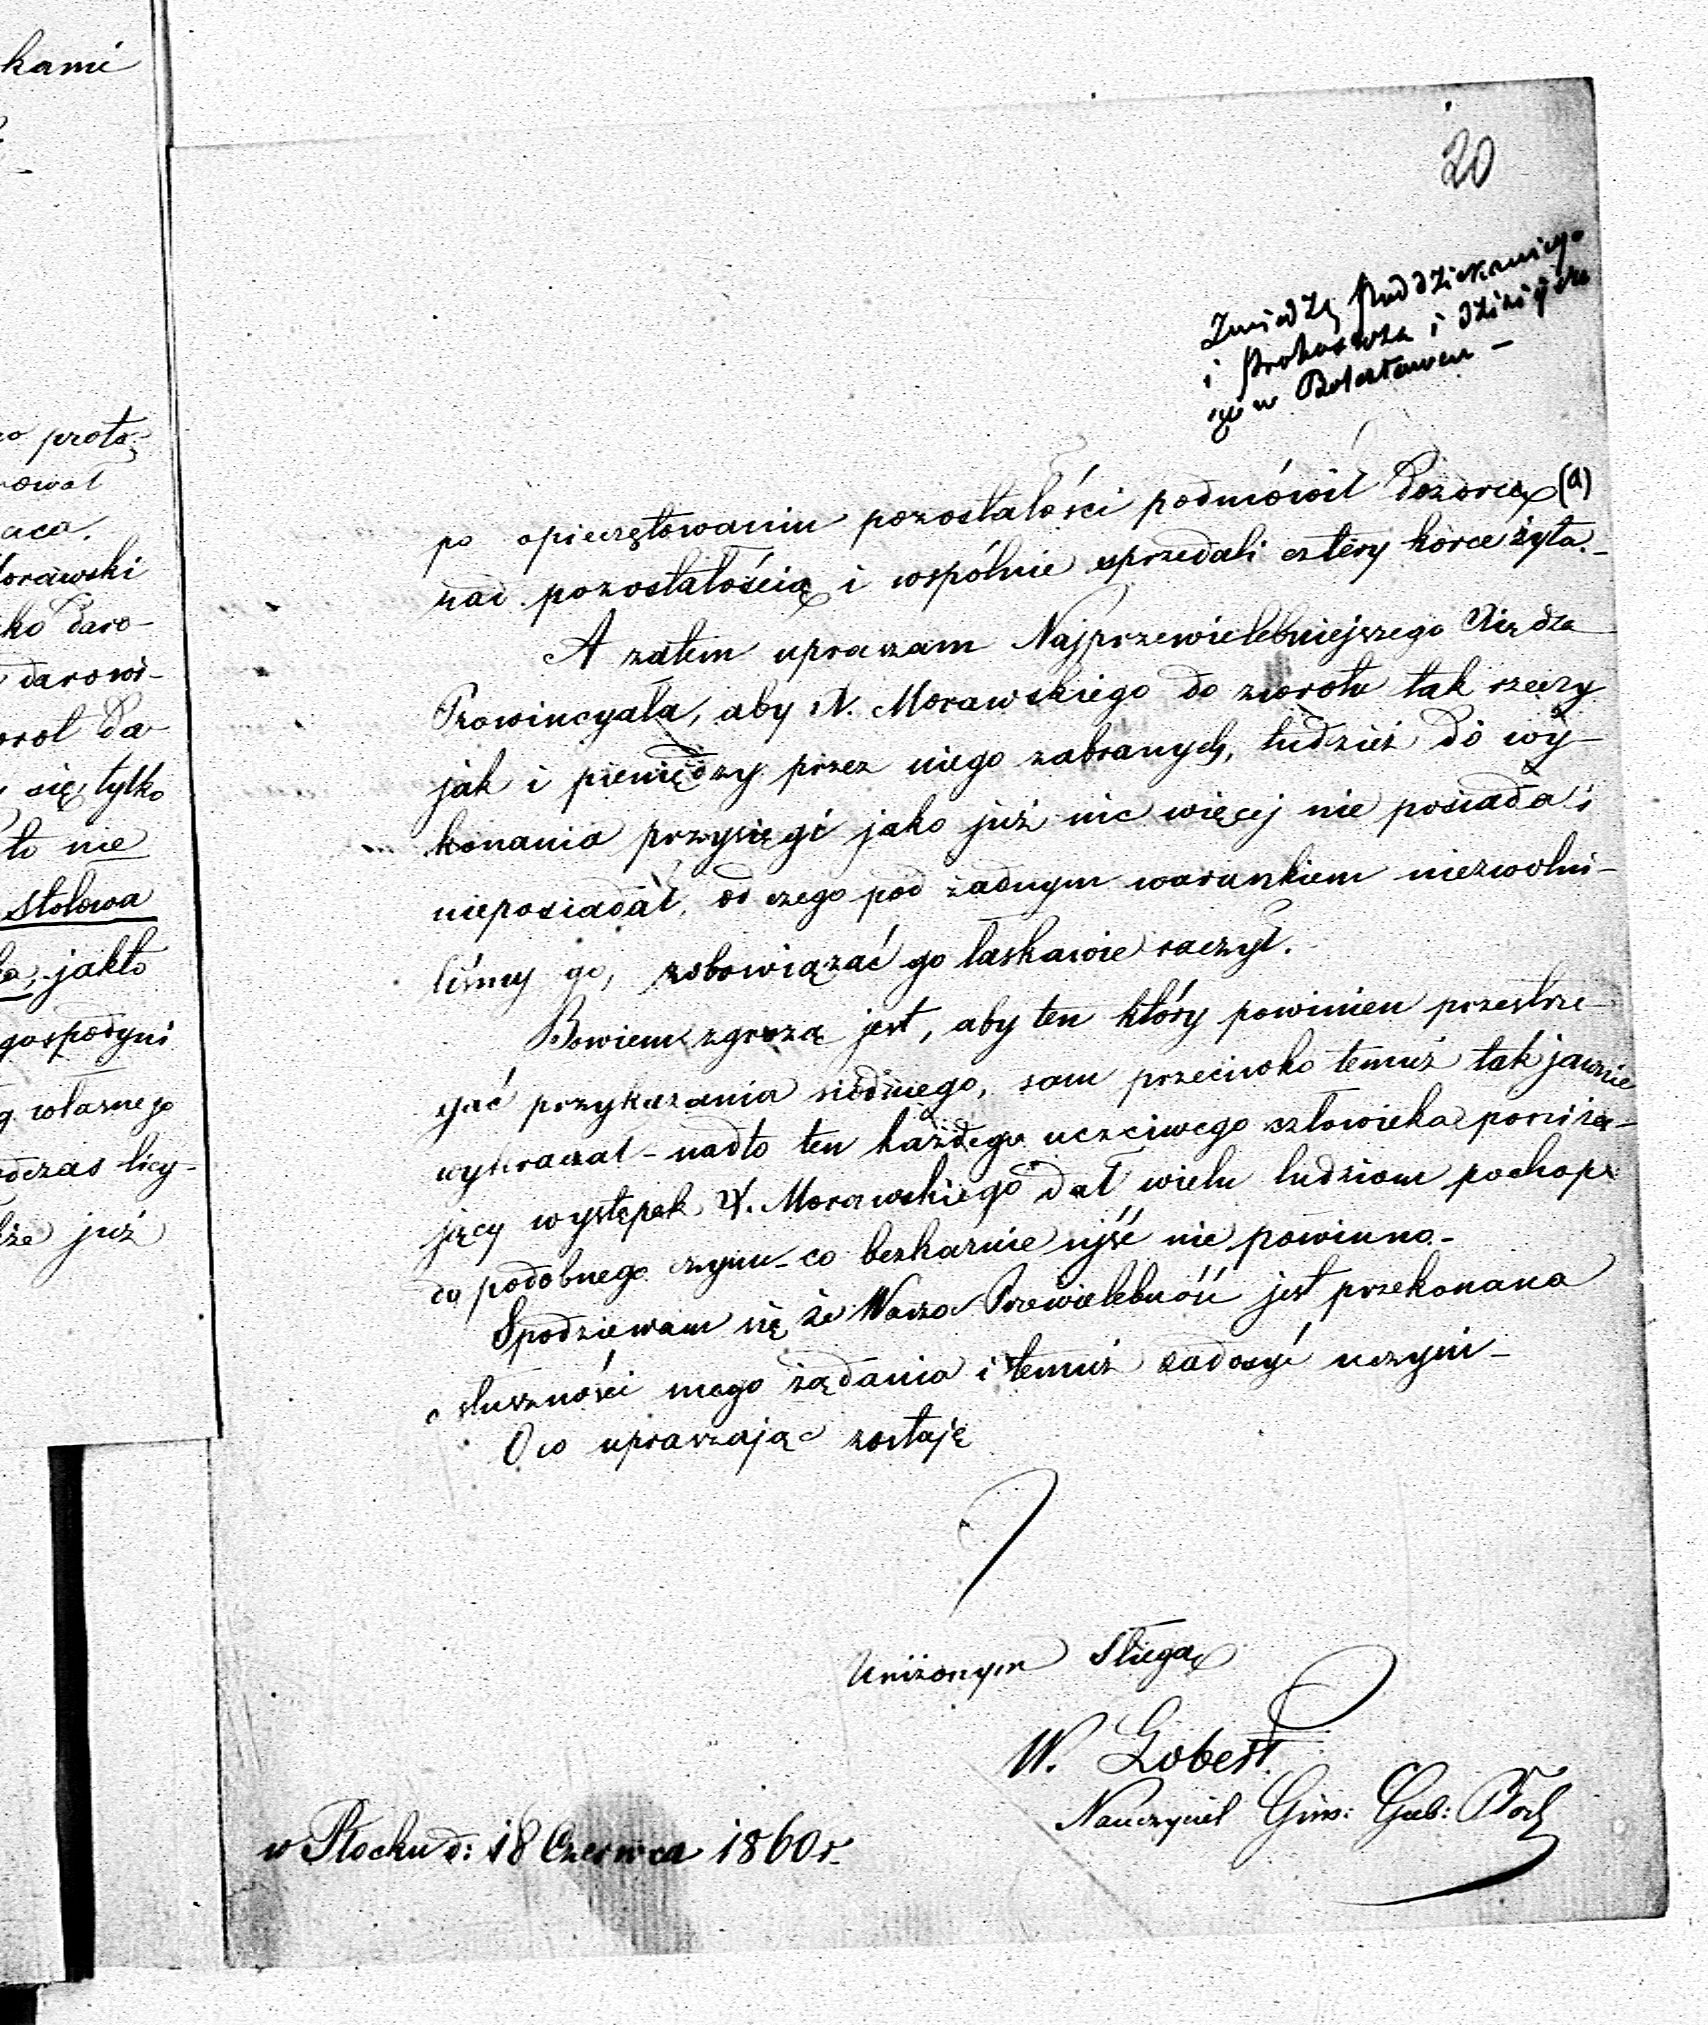 kami
20
co proto-
rowal
aca.
Morawski
ko daro-
darowi-
orot da
się tylko
to nie
stołowa
jakto
gospodyni
własnego
podczas licy-
że już
i Proboszcza i
w
po opieczętowaniu pozostałości podmówił Dozorcę (a)
nad pozostałością i wspólnie sprzedali cztéry korce żyta.-
A zatem upraszam Najprzewielebniejszego Xiędza
Prowincyała, aby X. Morawskiego do zwrotu tak rzeczy
jak i pieniędzy przez niego zabranych, tudzież do wy-
konania przysięgi jako już nic więcéj nie posiada i
nieposiadał, od czego pod żadnym warunkiem niezwolni-
liśmy go, zobowiązać go łaskawie raczył.
Bowiem zgrozą jest, aby ten który powinien przestrze-
gać przykazania siódmego, sam przeciwko temuż tak jawnie
wykraczał - nadto ten każdego uczciwego człowieka poniża-
jący występek X. Morawskiego dał wielu ludziom pochop
do podobnego czynu - co bezkarnie ujść nie powinno.-
Spodziewam się że Wasza Przewielebność jest przekonana
o słuszności mego żądania i temuż zadosyć uczyni-
O co upraszając zostaję
Uniżonym Sługą
W. Gobert.
Nauczyciel Gim: Gub: Płock
w Płocku d: 18 Czerwca 1860 r.